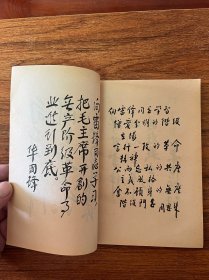 向雷锋同志学习，
把毛主席开创的
无产阶级革命事
业进行到底。
华国锋
向雷锋同志学习
憎爱分明的阶级
立场
言行一致的革命
精神
公而忘私的共产
主义风格
奋不顾身的无产
阶级斗志
周恩来